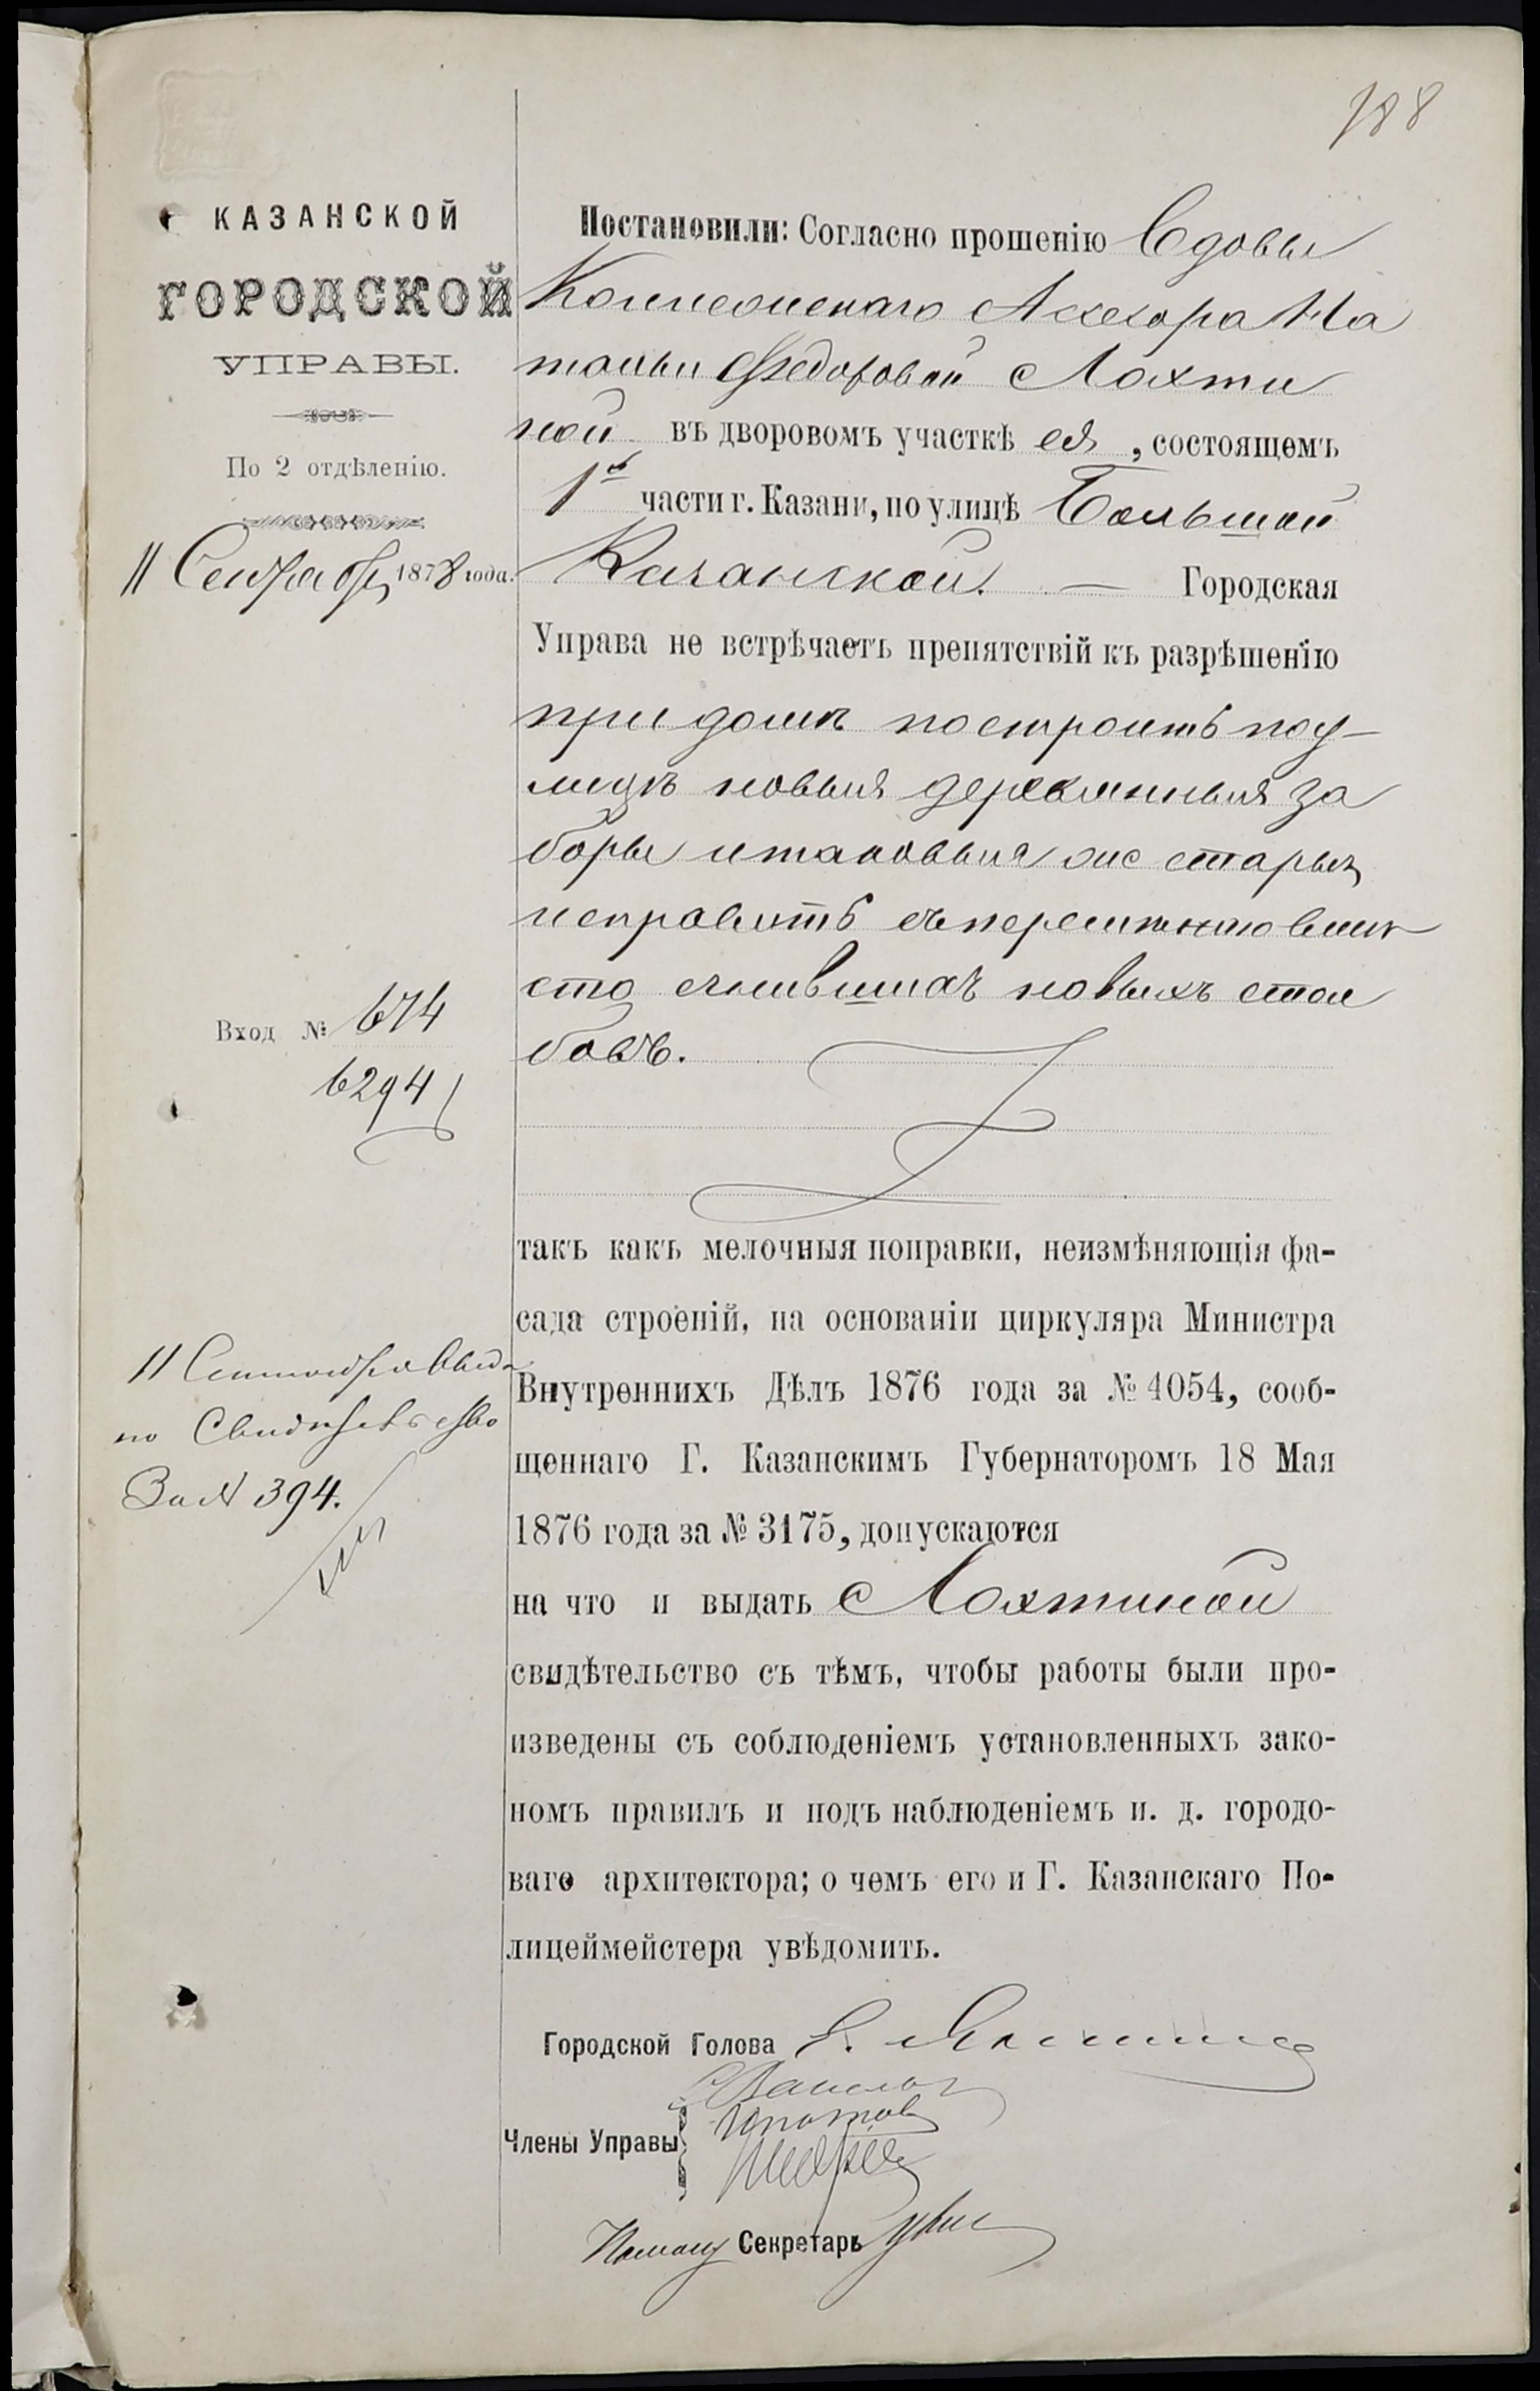 188
КАЗАНСКОЙ
ГОРОДСКОЙ
УПРАВЫ.
По 2 отдѣленію.
11 Сентября 1878 года.
Вход № 674
6294
11 Сентября выда
но Свидѣтельство
За № 394.
Постановили: Согласно прошенію Вдовы
Коллежскаго Ассесора На
тальи Федоровой Лохти
ной въ дворовомъ участкѣ ея, состоящемъ
1й части г. Казани, по улицѣ Большой
Казанской. — Городская
Управа не встрѣчаетъ препятствій къ разрѣшенію
при домѣ построить по у-
лицѣ новыя деревянныя за
боры и таковыя же старыя
исправить съ перемѣною вмѣ
сто сгнившихъ новыхъ стол
бовъ.
такъ какъ мелочныя поправки, неизмѣняющія фа-
сада строеній, на основаніи циркуляра Министра
Внутреннихъ Дѣлъ 1876 года за № 4054, сооб-
щеннаго Г. Казанскимъ Губернаторомъ 18 Мая
1876 года за № 3175, допускаются
на что и выдать Лохтиной
свидѣтельство съ тѣмъ, чтобы работы были про-
изведены съ соблюденіемъ установленныхъ зако-
номъ правилъ и подъ наблюденіемъ и. д. городо-
ваго архитектора; о чемъ его и Г. Казанскаго По-
лицеймейстера увѣдомить.
Городской Голова
Члены Управы
Ипатов
Помощ Секретарь